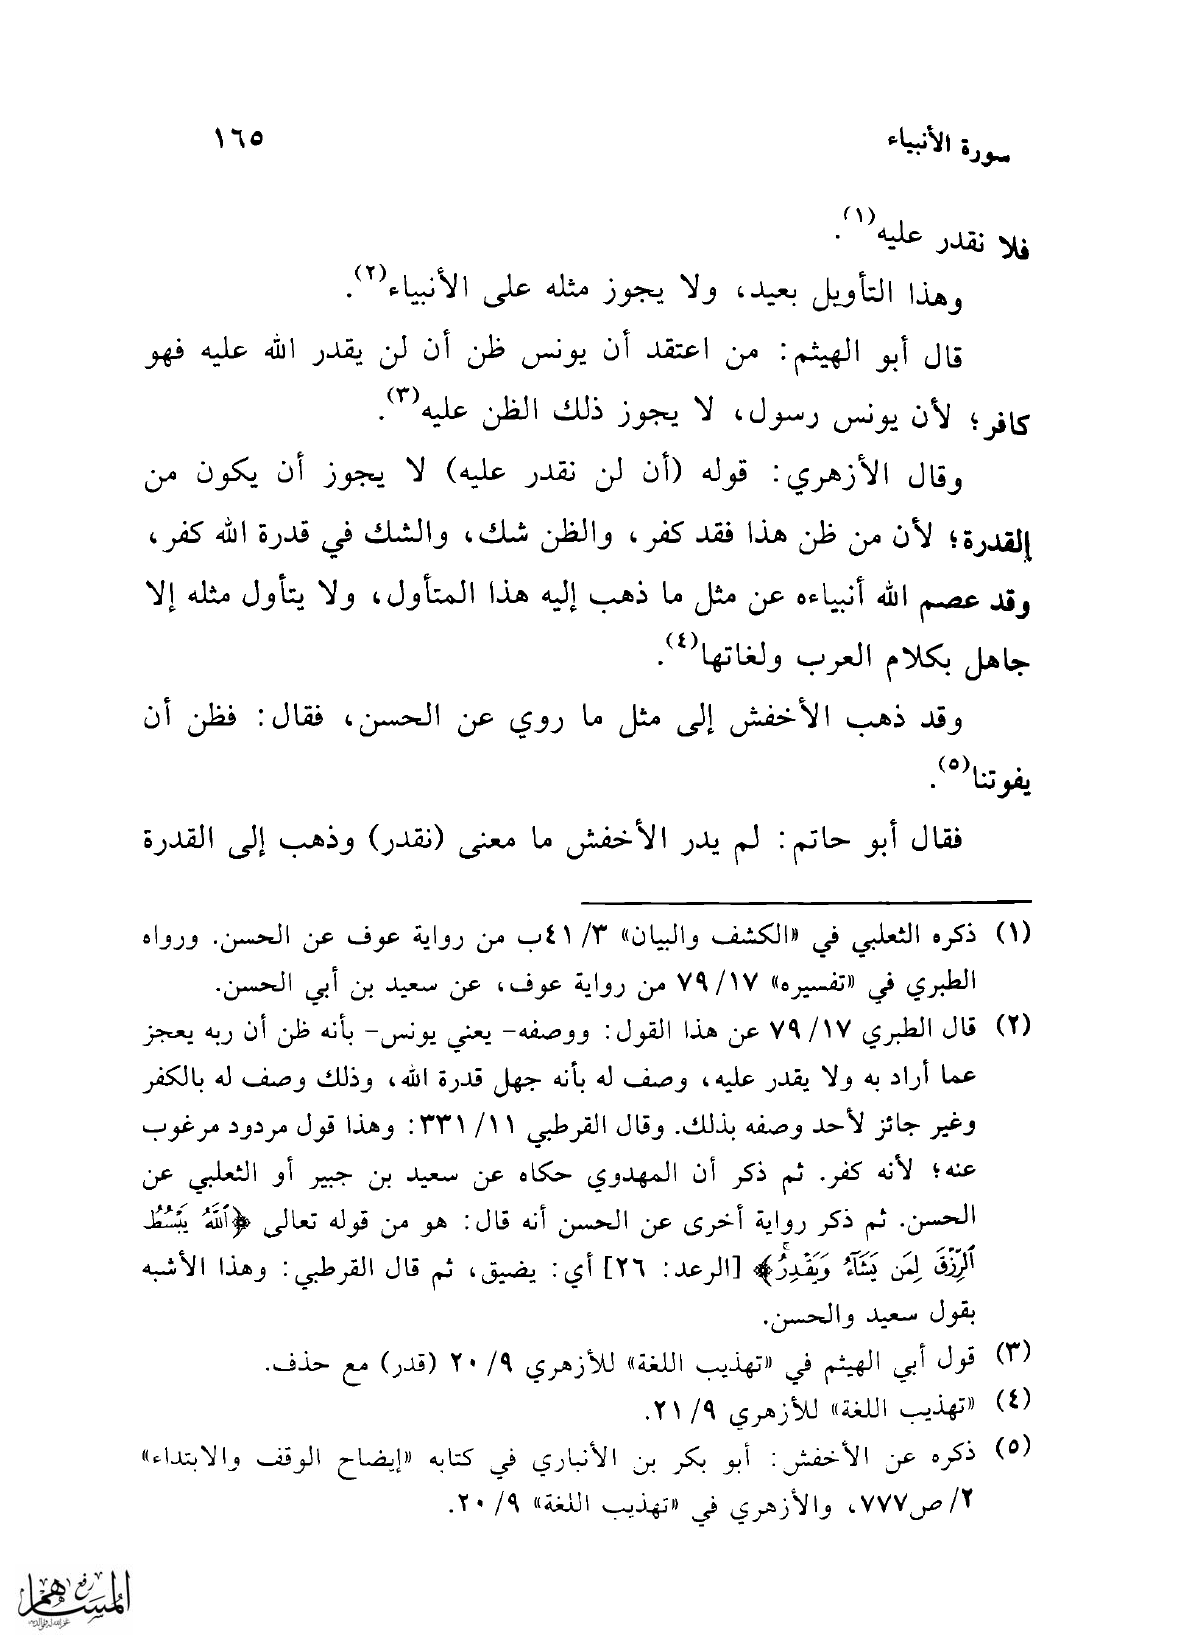 سورة الأنبياء ١٦٥
فلا نقدر عليه(١).
وهذا التأويل بعيد، ولا يجوز مثله على الأنبياء(٢).
قال أبو الهيثم: من اعتقد أن يونس ظن أن لن يقدر الله عليه فهو
كافر؛ لأن يونس رسول، لا يجوز ذلك الظن عليه(٣).
وقال الأزهري: قوله (أن لن نقدر عليه) لا يجوز أن يكون من
القدرة؛ لأن من ظن هذا فقد كفر، والظن شك، والشك في قدرة الله كفر،
وقد عصم الله أنبياءه عن مثل ما ذهب إليه هذا المتأول، ولا يتأول مثله إلا
جاهل بكلام العرب ولغاتها(٤).
وقد ذهب الأخفش إلى مثل ما روي عن الحسن، فقال: فظن أن
يفوتنا(٥).
فقال أبو حاتم: لم يدر الأخفش ما معنى (نقدر) وذهب إلى القدرة
(١) ذكره الثعلبي في «الكشف والبيان» ٣/ ٤١ب من رواية عوف عن الحسن. ورواه
الطبري في «تفسيره» ١٧/ ٧٩ من رواية عوف، عن سعيد بن أبي الحسن.
(٢) قال الطبري ١٧/ ٧٩ عن هذا القول: ووصفه- يعني يونس- بأنه ظن أن ربه يعجز
عما أراد به ولا يقدر عليه، وصف له بأنه جهل قدرة الله، وذلك وصف له بالكفر
وغير جائز لأحد وصفه بذلك. وقال القرطبي ١١/ ٣٣١: وهذا قول مردود مرغوب
عنه؛ لأنه كفر. ثم ذكر أن المهدوي حكاه عن سعيد بن جبير أو الثعلبي عن
الحسن. ثم ذكر رواية أخرى عن الحسن أنه قال: هو من قوله تعالى ﴿ٱللَّهُ يَبْسُطُ
ٱلرِّزْقَ لِمَن يَشَآءُ وَيَقْدِرُۚ﴾ [الرعد: ٢٦] أي: يضيق، ثم قال القرطبي: وهذا الأشبه
بقول سعيد والحسن.
(٣) قول أبي الهيثم في «تهذيب اللغة» للأزهري ٩/ ٢٠ (قدر) مع حذف.
(٤) «تهذيب اللغة» للأزهري ٩/ ٢١.
(٥) ذكره عن الأخفش: أبو بكر بن الأنباري في كتابه «إيضاح الوقف والابتداء»
٢/ ص٧٧٧، والأزهري في «تهذيب اللغة» ٩/ ٢٠.
رفع
المساهم